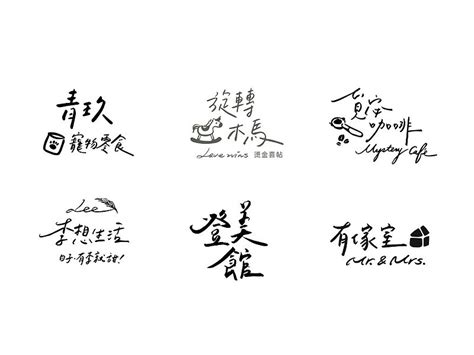 青玖
寵物零食
旋轉
木馬
Love wins 燙金喜帖
覓蜜
咖啡
Mystery Cafe
Lee
李想生活
登美
館
有家室
Mr. & Mrs.